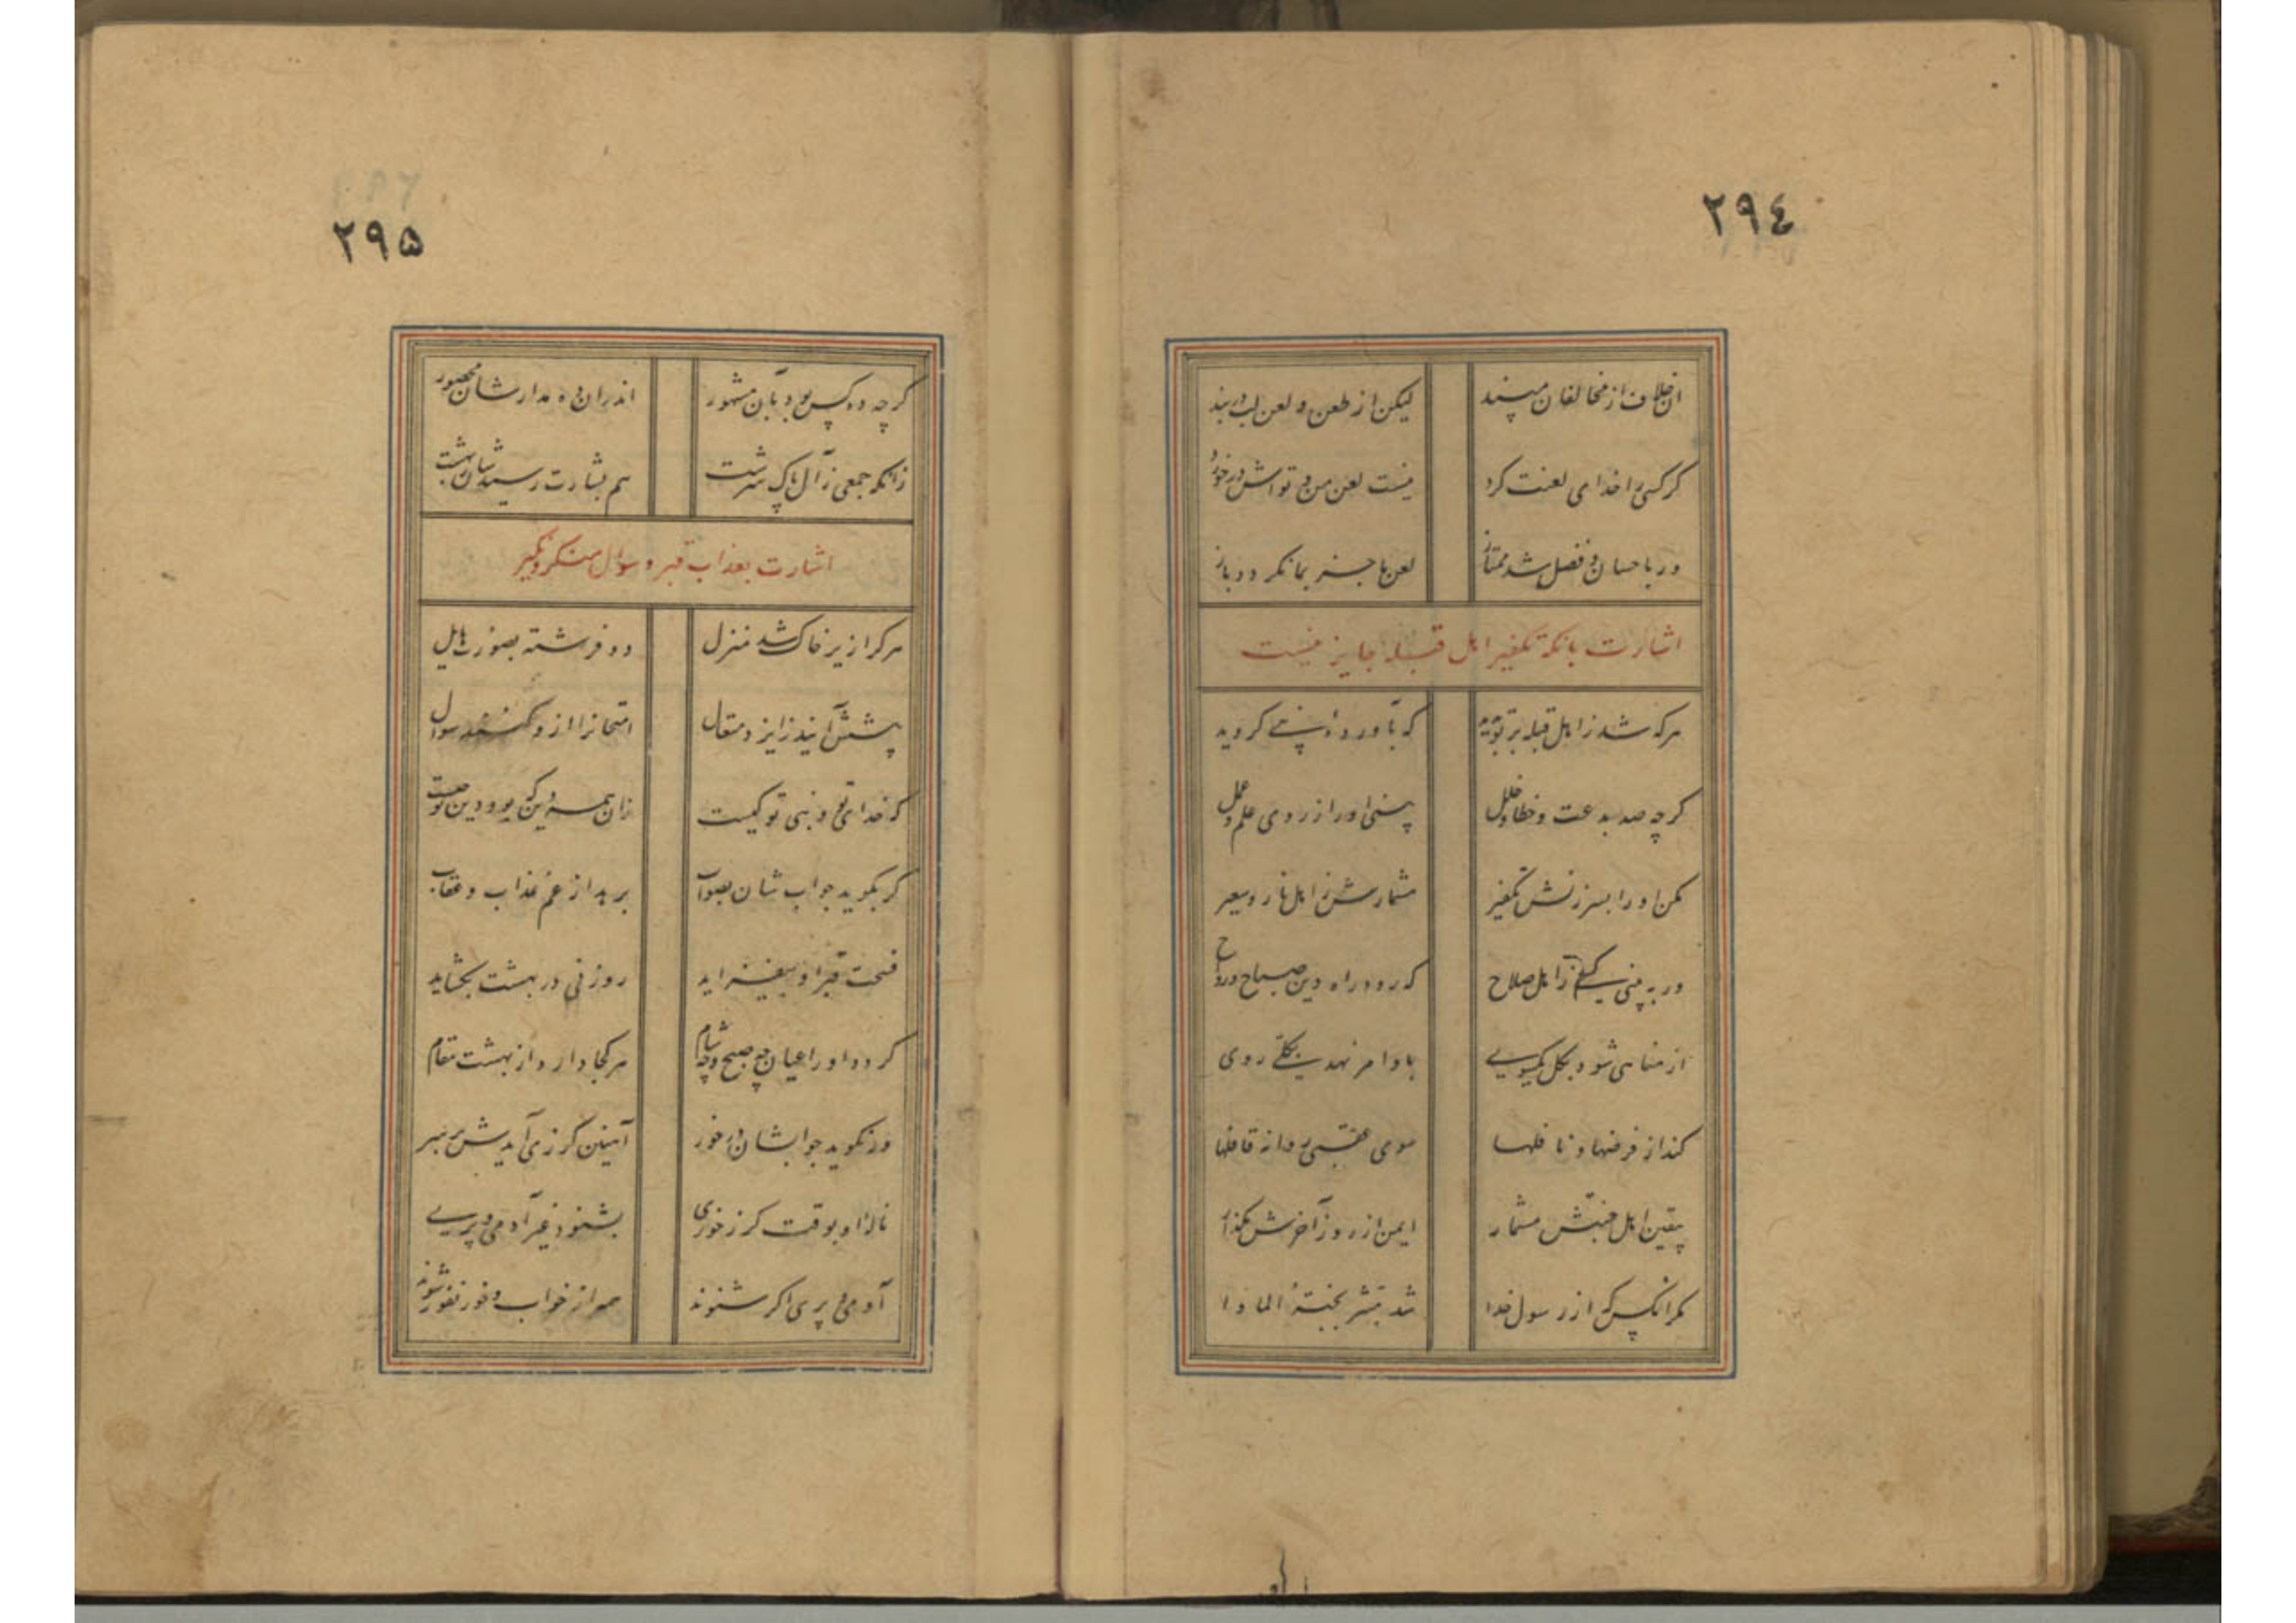 ٢٩٤
آن خلاف از مخالفان مپسند لیکن از طعن و لعن لب دربند
گر کسی را خدای لعنت کرد نیست لعن من و تواش درخورد
ور باحسان و فضل شد ممتاز لعن ما جز بما نگردد باز
اشارت بآنکه تکفیر اهل قبله جایز نیست
هر که شد ز اهل قبله بر تو پدید که بآورده نبی گروید
گرچه صد بدعت و خطا و خلل بینی او را ز روی علم و عمل
مکن او را بسرزنش تکفیر مشمارش ز اهل نار و سعیر
ور ببینی کسی ز اهل صلاح که رود راه دین صباح و رواح
از مناهی شود بکل یکسوی باوامر نهد بکلی روی
کند از فرضها و نافلها سوی عقبی روانه قافلها
بیقین اهل جنتش مشمار ایمن از روز آخرش مگذار
مگر آنکس که از رسول خدا شد مبشر بجنة المأوا
٢٩٥
گرچه ده کس بود بآن مشهور اندر آن ده مدارشان محصور
زانکه جمعی ز آل پاک سرشت هم بشارت رسیدشان ببهشت
اشارت بعذاب قبر و سوال منکر و نکیر
هر کرا زیر خاک شد منزل دو فرشته بصورت هایل
پیشش آیند ز ایزد متعال امتحان را ازو کنند سوال
که خدای تو و نبی تو کیست زان همه دین که بود دین تو چیست
گر بگوید جوابشان بصواب برهد از غم عذاب و عقاب
فسحت قبر او بیفزاید روزنی در بهشت بگشاید
گردد او را عیان چه صبح و چه شام هر کجا دارد از بهشت مقام
ور نگوید جوابشان درخور آهنین گرزی آیدش بر سر
ناله او بوقت گرز خوری بشنود غیر آدمی و پری
آدمی و پری اگر شنوند همه از خواب و خور نفور شوند